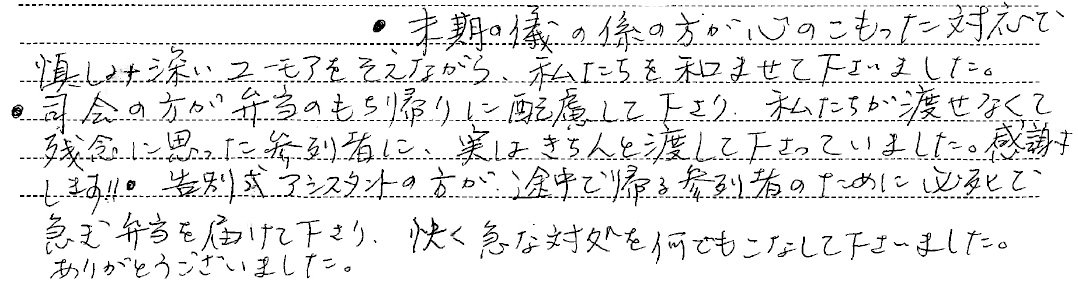 • 末期の儀の係の方が心のこもった対応で
慎しみ深いユーモアをそえながら、私たちを和ませて下さいました。
• 司会の方が弁当のもち帰りに配慮して下さり、私たちが渡せなくて
残念に思った参列者に、実はきちんと渡して下さっていました。感謝
します!! • 告別式アシスタントの方が、途中で帰る参列者のために必死で
急ぎ弁当を届けて下さり、快く急な対処を何でもこなして下さいました。
ありがとうございました。